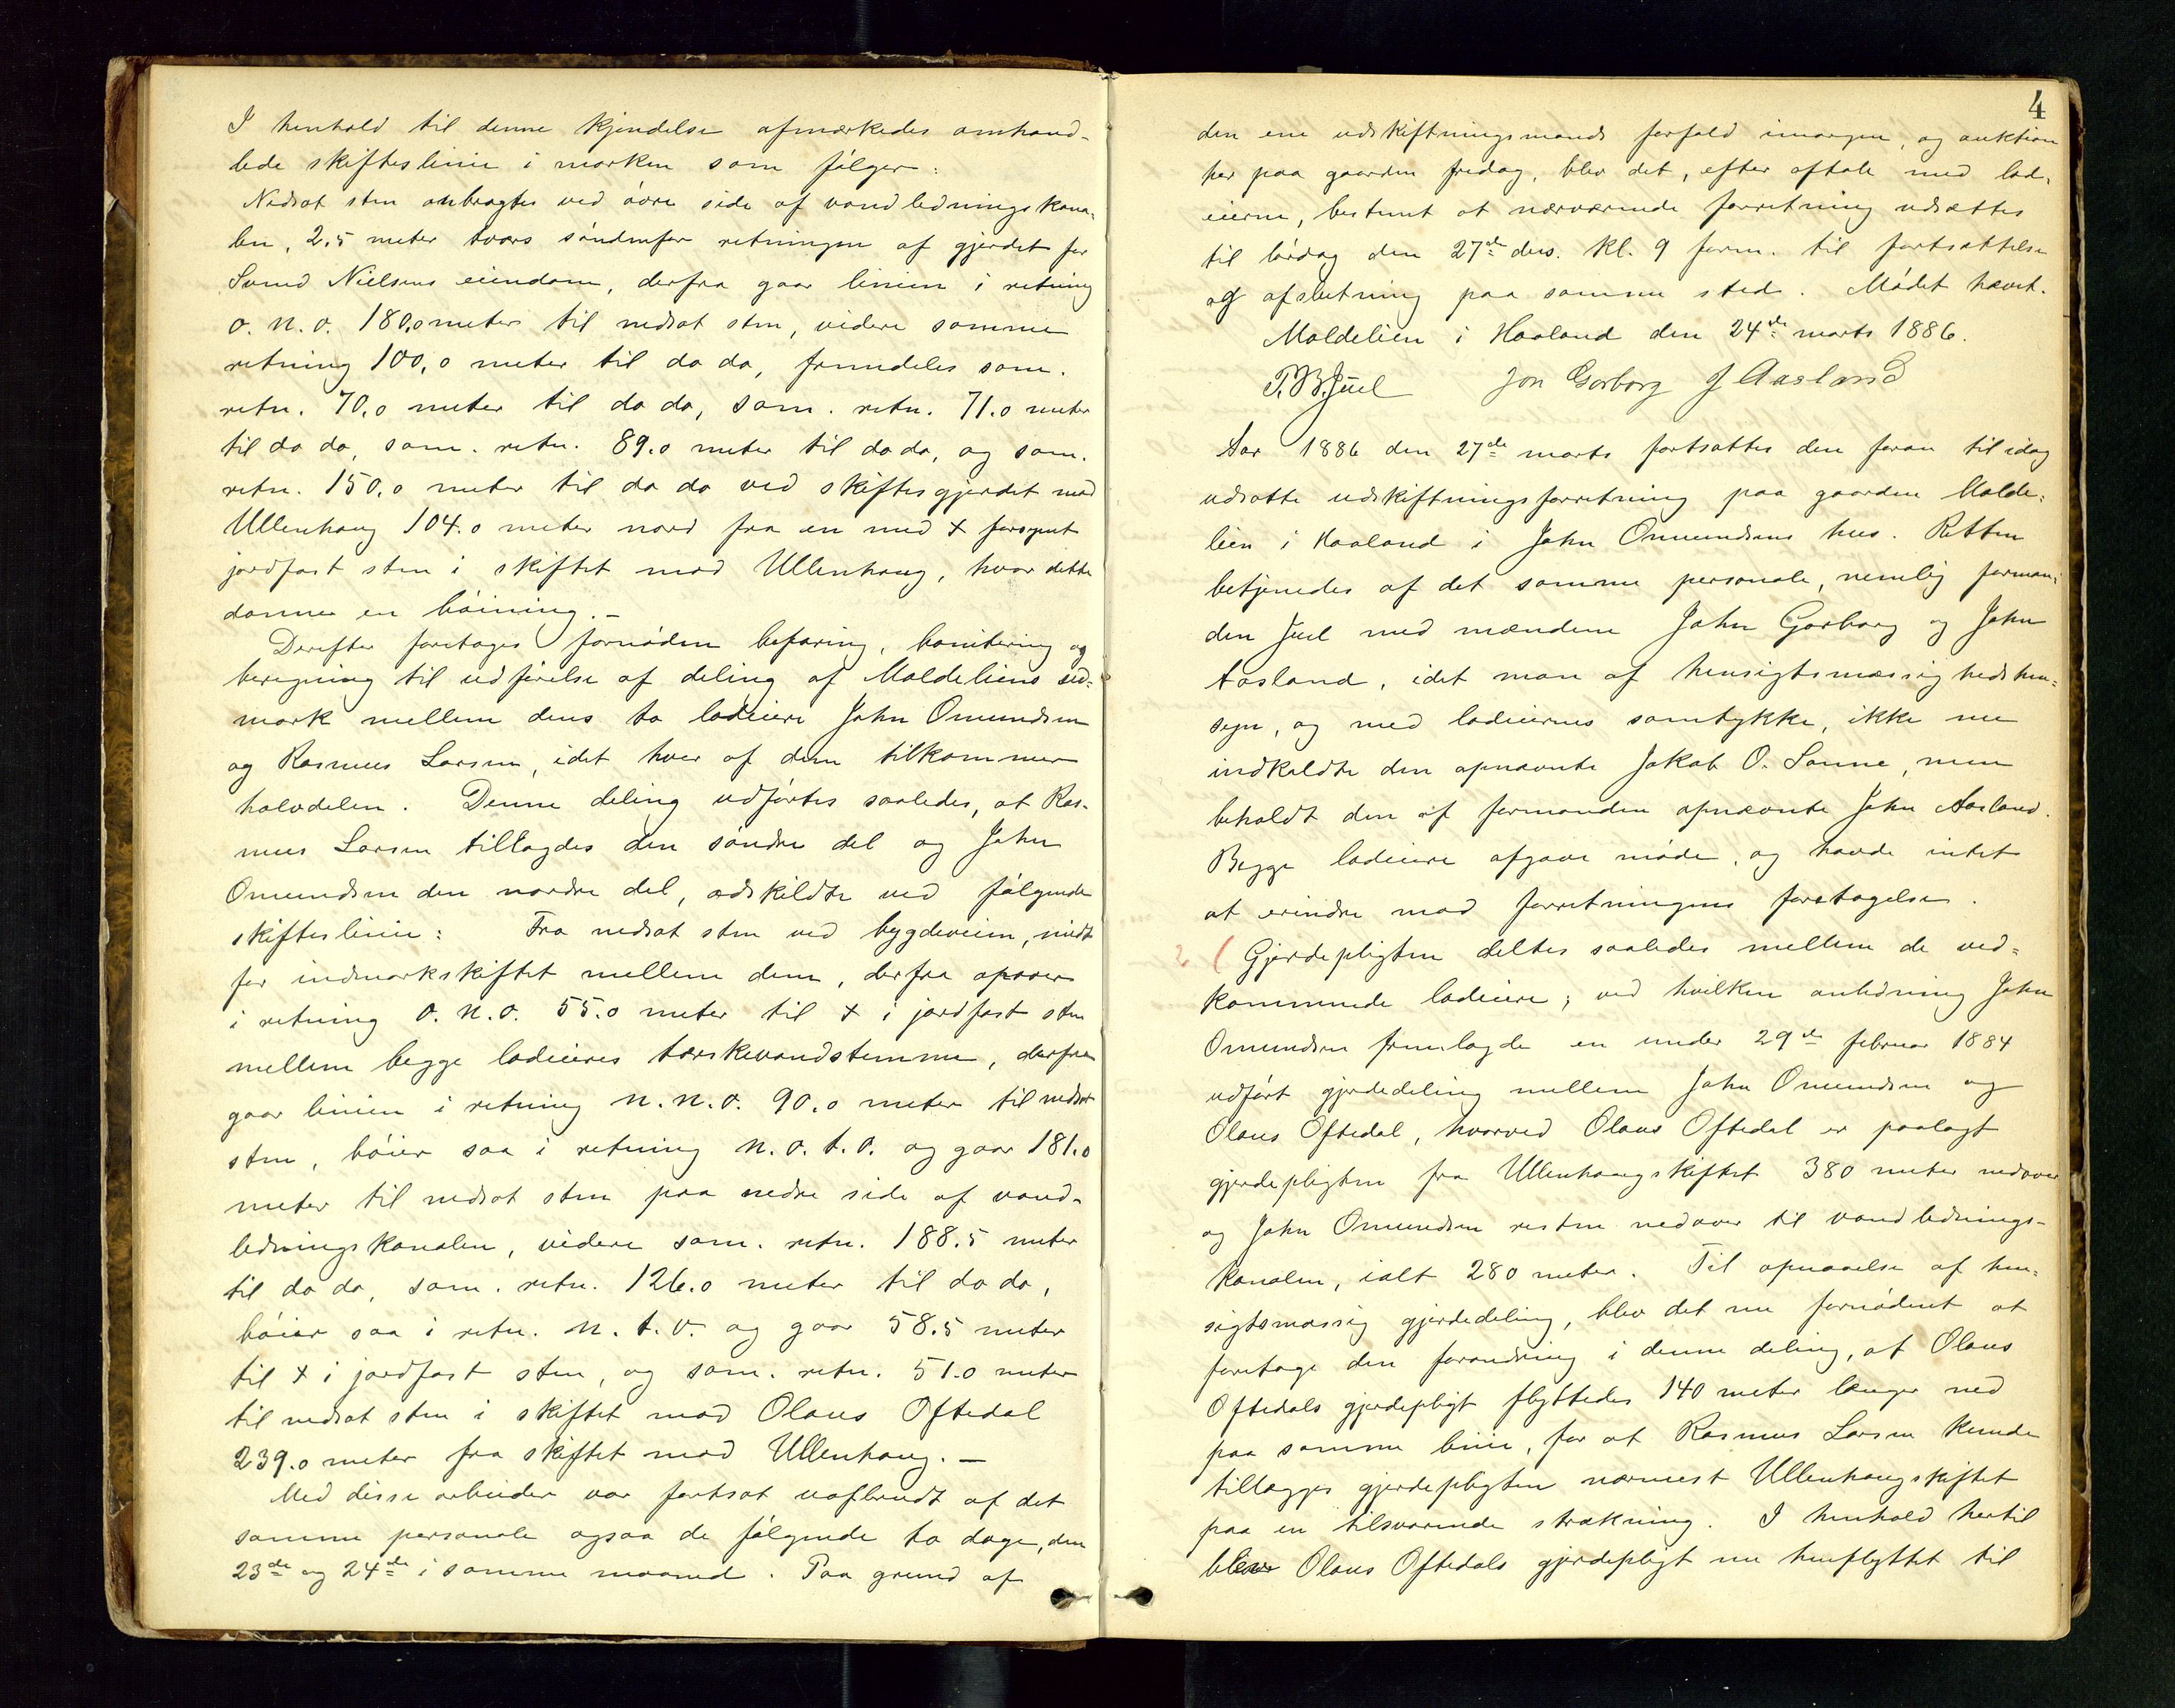 I henhold til denne kjendelse afmærkedes omhand-
lede skifteslinie i marken som følger:
Nedsat sten anbragtes ved øvre side af vandledningskana-
len, 2.5 meter tvers søndenfor retningen af gjerdet for
Svend Nielsens eiendom, derfra gaar linien i retning
o. n. o. 180.0 meter til nedsat sten, videre samme
retning 100.0 meter til do do, fremdeles sam.
retn. 70.0 meter til do do, sam. retn. 71.0 meter
til do do, sam. retn. 89.0 meter til do do, og sam.
retn. 150.0 meter til do do ved skiftesgjerdet mod
Ullenhaug 104.0 meter nord fra en med + forsynt
jordfast sten i skiftet mod Ullenhaug, hvor dette
danner en bøining. –
Derefter foretoges fornøden befaring, bonitering og
beregning til udførelse af deling af Maldeliens ud-
mark mellem dens to lodeiere John Omundsen
og Rasmus Larsen, idet hver af dem tilkommer
halvdelen. Denne deling udførtes saaledes, at Ras-
mus Larsen tillagdes den søndre del og John
Omundsen den nordre del, adskildte ved følgende
skifteslinie: Fra nedsat sten ved bygdeveien, midt
for indmarkskiftet mellem dem, derfra opover
i retning o. n. o. 55.0 meter til + i jordfast sten
mellem begge lodeieres tærskevandstemme, derfra
gaar linien i retning n. n. o. 90.0 meter til nedsat
sten, bøier saa i retning n. o. t. o. og gaar 181.0
meter til nedsat sten paa nedre side af vand-
ledningskanalen, videre sam. retn. 188.5 meter
til do do, sam. retn. 126.0 meter til do do,
bøier saa i retn. n. t. o. og gaar 58.5 meter
til + i jordfast sten, og sam. retn. 51.0 meter
til nedsat sten i skiftet mod Olaus Oftedal
239.0 meter fra skiftet mod Ullenhaug. –
Med disse arbeider var fortsat uafbrudt af det
samme personale ogsaa de følgende to dage, den
23de og 24de i samme maaned. Paa grund af
4
den ene udskiftningsmands forfald imorgen, og auktion
her paa gaarden fredag, blev det, efter aftale med lod-
eierne, bestemt at nærværende forretning udsættes
til lørdag den 27de ds. kl. 9 form. til fortsættelse
og afslutning paa samme sted. Mødet hævet.
Maldelien i Haaland den 24de marts 1886.
T. B. Juel Jon Gorborg J Aasland
Aar 1886 den 27de marts fortsattes den foran til idag
udsatte udskiftningsforretning paa gaarden Malde-
lien i Haaland i John Omundsens hus. Retten
betjenedes af det samme personale, nemlig forman-
den Juel med mændene John Gorborg og John
Aasland, idet man af hensigtsmæssighedshen-
syn, og med lodeiernes samtykke, ikke nu
indkaldte den opnævnte Jakob O. Sømme, men
beholdt den af formanden opnævnte John Aasland.
Begge lodeiere afgave møde, og havde intet
at erindre mod forretningens foretagelse.
( Gjerdepligten deltes saaledes mellem de ved-
kommende lodeiere; ved hvilken anledning John
Omundsen fremlagde en under 29de februar 1884
udført gjerdedeling mellem John Omundsen og
Olaus Oftedal, hvorved Olaus Oftedal er paalagt
gjerdepligten fra Ullenhaugskiftet 380 meter nedover
og John Omundsen resten nedover til vandlednings-
kanalen, ialt 280 meter. Til opnaaelse af hen-
sigtsmæssig gjerdedeling, blev det nu fornødent at
foretage den forandring i denne deling, at Olaus
Oftedals gjerdepligt flyttedes 140 meter længer ned
paa samme linie, for at Rasmus Larsen kunde
tillægges gjerdepligten nærmest Ullenhaugskiftet
paa en tilsvarende strækning. I henhold hertil
blev Olaus Oftedals gjerdepligt nu henflyttet til